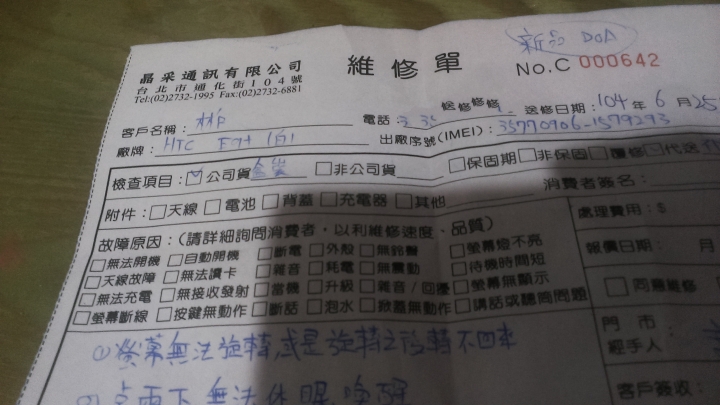 新品 DOA
晶采通訊有限公司
台北市通化街104號
Tel:(02)2732-1995 Fax:(02)2732-6881
維修單
No.C 000642
客戶名稱:林
電話:
送修日期:104年6月25
廠牌:HTC
出廠序號(IMEI):
檢查項目:☑公司貨 □非公司貨 □保固期□非保固□覆修□代送
附件:□天線 □電池 □背蓋 □充電器 □其他
消費者簽名:
故障原因:(請詳細詢問消費者,以利維修速度、品質)
處理費用:$
□無法開機 □自動開機 □斷電 □外殼 □無鈴聲 □螢幕燈不亮
報價日期: 月
□天線故障 □無法讀卡 □雜音 □耗電 □無震動 □待機時間短
□無法充電 □無接收發射 □當機 □升級 □雜音/回響 □螢幕無顯示
□同意維修
□螢幕斷線 □按鍵無動作 □斷話 □泡水 □掀蓋無動作 □講話或聽筒問題
①螢幕無法旋轉,或是旋轉之後轉不回來
門市:
經手人
無法休眠,喚醒
客戶簽收: